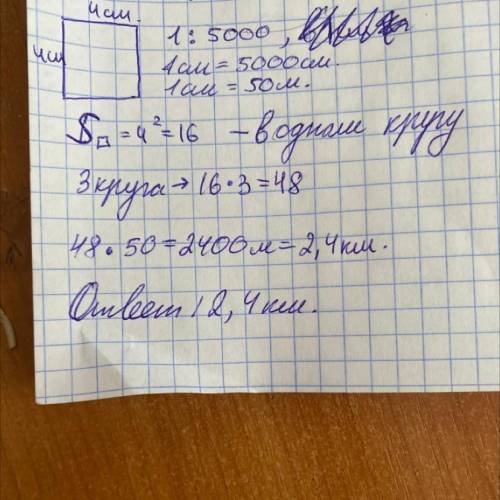 4см.
4см
1 : 5000 ,
1см = 5000см.
1см = 50м.
S□ = 4² = 16 – в одном кругу
3 круга → 16 · 3 = 48
48 · 50 = 2400м = 2,4км.
Ответ: 2,4км.